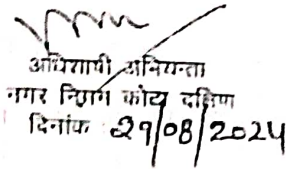 अधिशाषी अभियन्ता
नगर निगम कोटा दक्षिण
दिनांक 29/08/2024